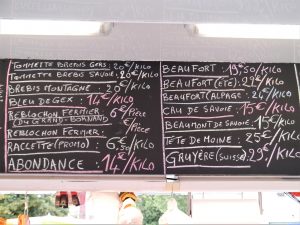 TOMMETTE PYRENEES GERS: 20€/KILO
TOMMETTE BREBIS SAVOIE: 20€/KILO
BREBIS MONTAGNE: 20€/KILO
BLEU DE GEX: 14€/KILO
REBLOCHON FERMIER 6€/PIECE
(DU GRAND-BORNAND)
REBLOCHON FERMIER: /PIECE
RACLETTE (PROMO): 6€,50/KILO
ABONDANCE: 14€/KILO
BEAUFORT: 19€,50/KILO
BEAUFORT (ETE): /KILO
BEAUFORT (ALPAGE): /KILO
DE SAVOIE: 15€/KILO
BEAUMONT DE SAVOIE: 15€/KILO
TETE DE MOINE: 25€/KILO
GRUYÈRE (SUISSE): 29€/KILO